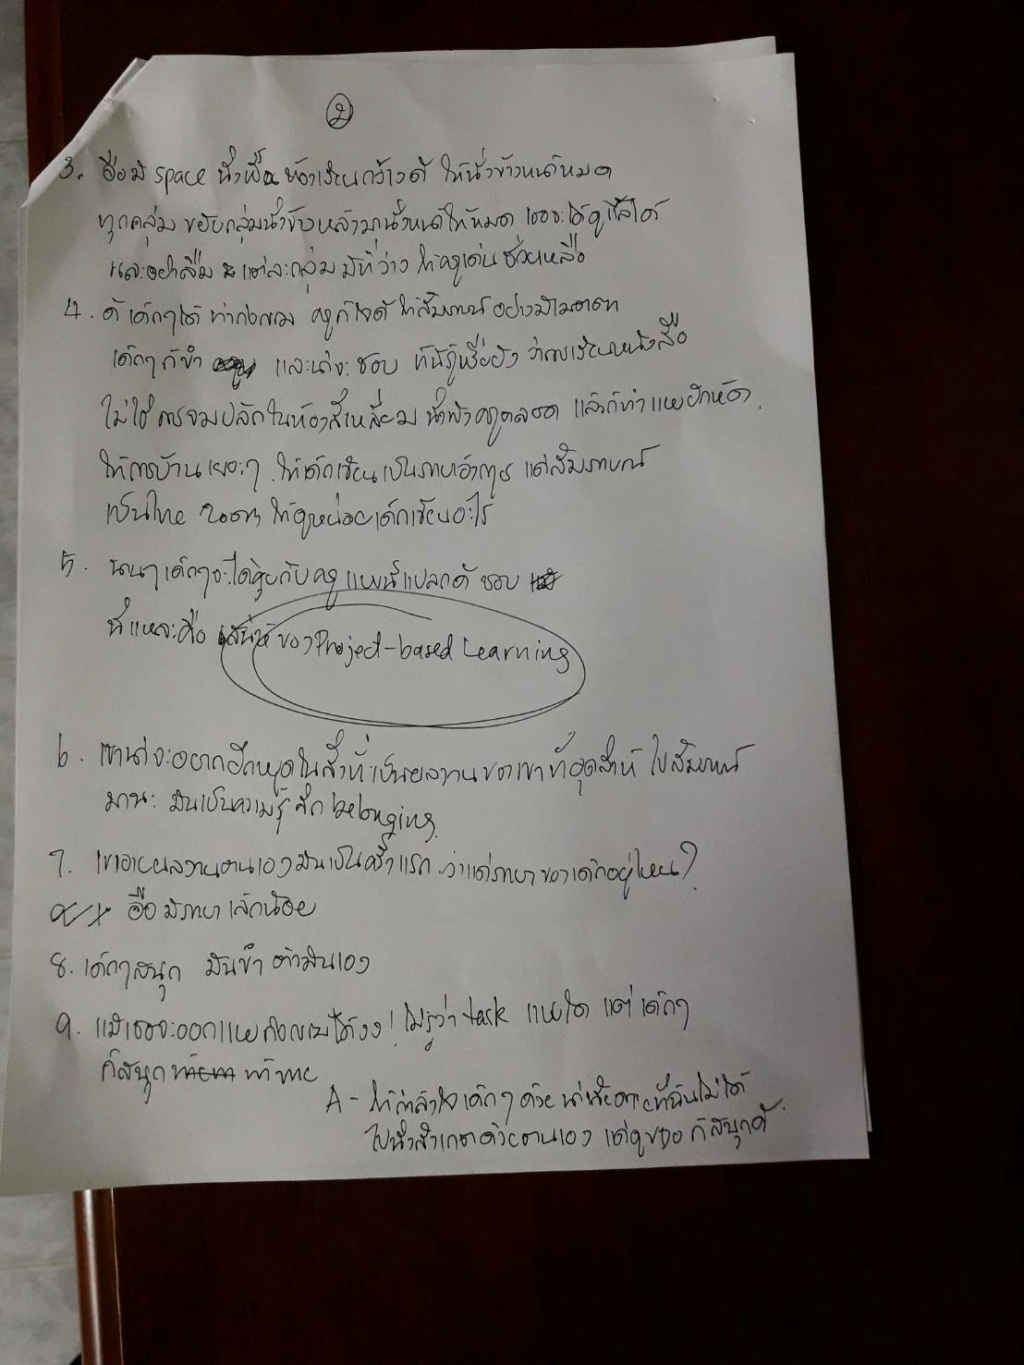 ②
3. อือมี space นั่งพื้น ห้องเรียนกว้างดี ให้นั่งข้างหน้าหมด
ทุกกลุ่ม ขยับกลุ่มนั่งข้างหลังมานั่งหน้าให้หมด เธอจะได้ดูแลได้
และอย่าลืม แต่ละกลุ่ม มีที่ว่าง ให้ครูเดินช่วยเหลือ
4. ดี เด็กๆได้ ทำ ครูก็ใจดี ให้สัมภาษณ์ อย่างมีเมตตา
เด็กๆ ก็ขำ และน่าจะชอบ ว่าการเรียนหนังสือ
ไม่ใช่ การจมปลักในห้องสี่เหลี่ยม นั่งฟังครูตลอด แล้วก็ทำแบบฝึกหัด.
ให้การบ้านเยอะๆ. ให้เด็กเขียนเป็นภาษาอังกฤษ แต่สัมภาษณ์
เป็นไทย ให้ดูหน่อยเด็กเขียนอะไร
5. นานๆเด็กๆจะได้คุยกับครู แบบนี้แปลกดี ชอบ
นี่แหละคือ เสน่ห์ของ Project-based Learning
6. เขาน่าจะอยากฝึกพูดในสิ่งที่เป็นผลงานของเขาที่อุตส่าห์ ไปสัมภาษณ์
มานะ มันเป็นความรู้สึก belonging.
7. เขาอาผลงานตนเองมันเป็นครั้งแรก ว่าแต่ภาษาของเด็กอยู่ไหน?
อือ มีภาษาเล็กน้อย
8. เด็กๆสนุก มันขำ ตัวมันเอง
9. แม้เธอจะออกแบบ ได้งง! ไม่รู้ว่า task แบบใด แต่ เด็กๆ
ก็สนุก
A - ให้กำลังใจเด็กๆ ด้วย ที่ฉันไม่ได้
ไปนั่งสังเกตด้วยตนเอง แต่ดู VDO ก็สนุกดี